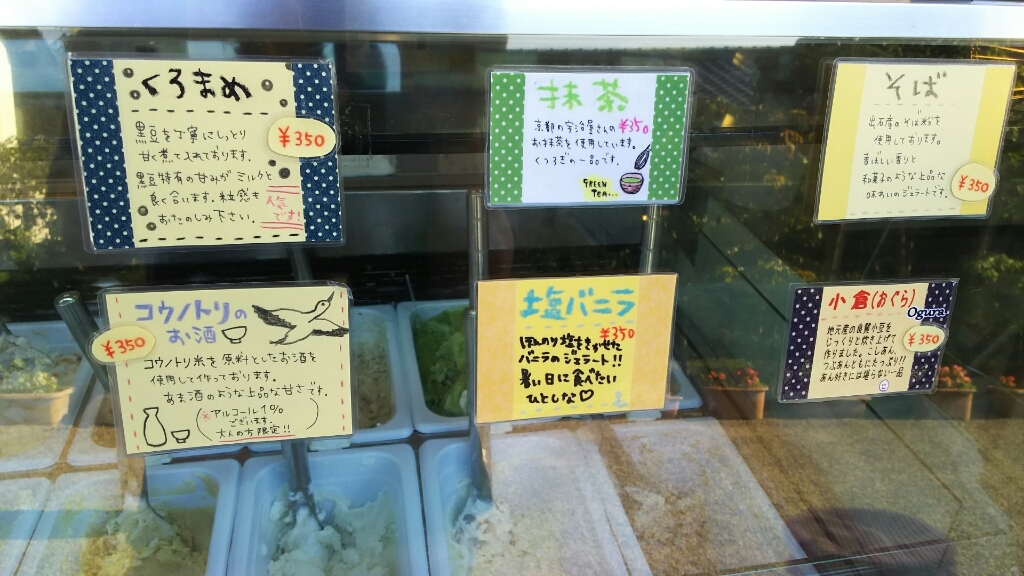 くろまめ
黒豆を丁寧にしっとり
甘く煮て入れております。
黒豆特有の甘みがミルクと
良く合います。粒感も
おたのしみ下さい。
人気
です!
¥350
抹茶
京都の宇治屋さんの
お抹茶を使用しています。
くつろぎの一品です。
¥350
GREEN
TEA...
そば
出石産のそば粉を
使用しております。
香ばしい香りと
和菓子のような上品な
味わいのジェラートです。
¥350
コウノトリの
お酒
¥350
コウノトリ米を原料としたお酒を
使用して作っております。
あま酒のような上品な甘さです。
※アルコール1%
ございます。
大人の方限定!!
塩バニラ
¥350
ほんのり塩をきかせた
バニラのジェラート!!
暑い日に食べたい
ひとしな♡
小倉(おぐら)
Ogura
¥350
地元産の良質小豆を
じっくりと炊き上げて
作りました。こしあん、
つぶあんともにたっぷり!!
あん好きには堪らない一品